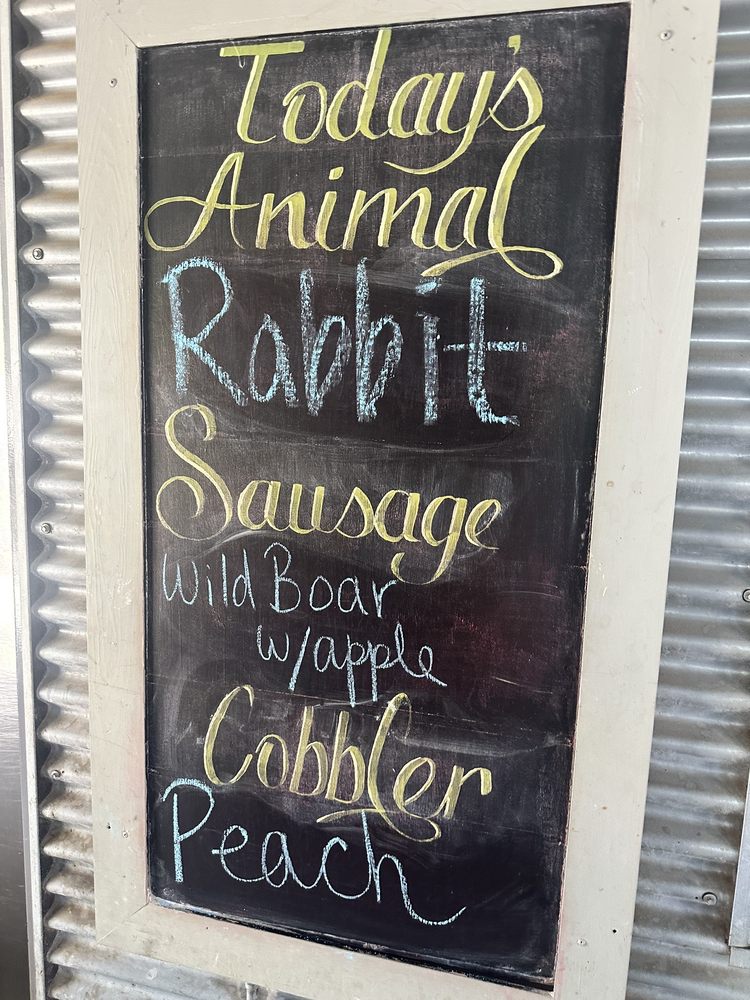 Today's
Animal
Rabbit
Sausage
Wild Boar
w/apple
Cobbler
Peach